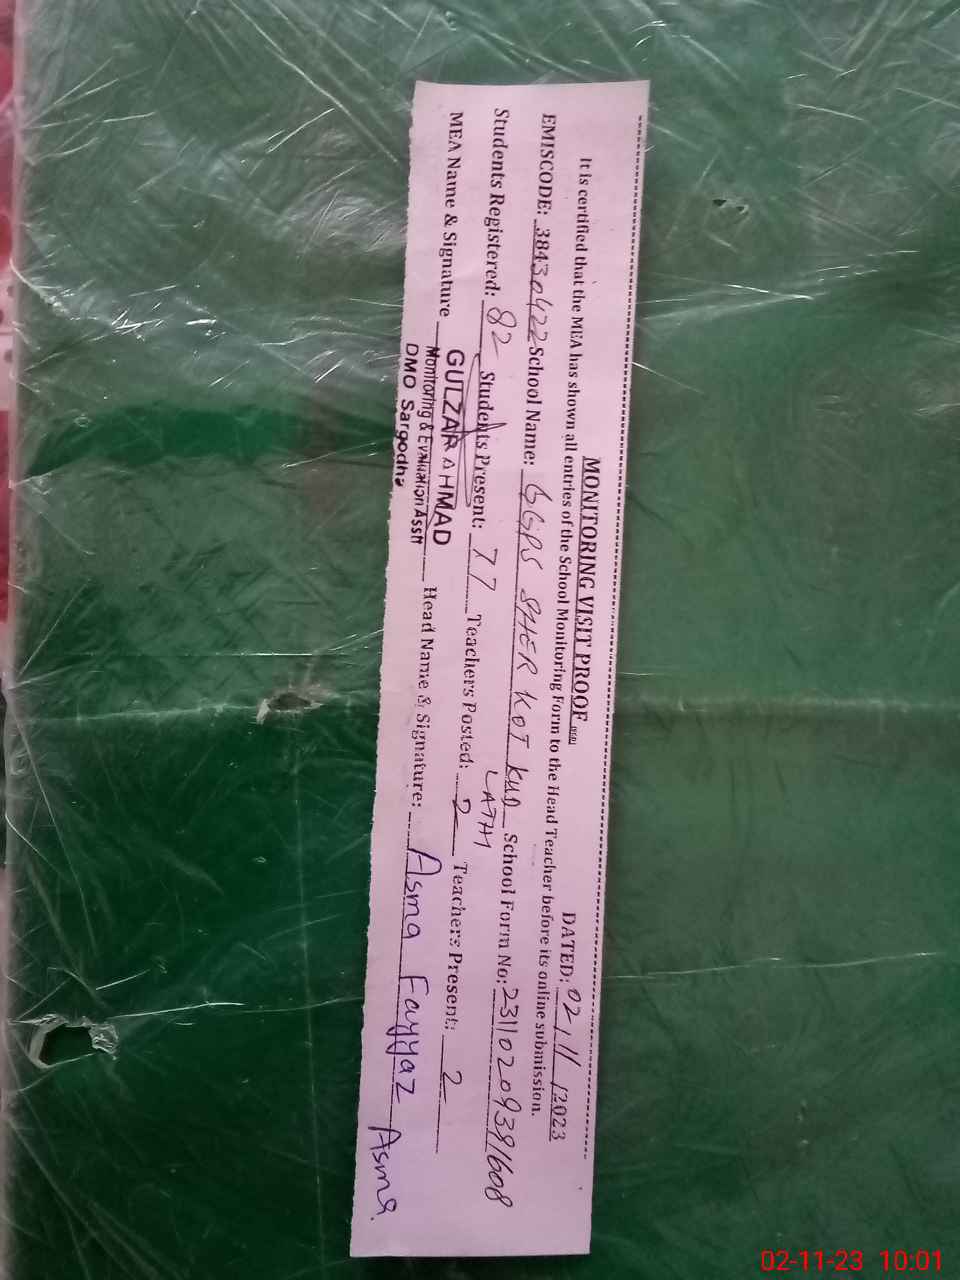 MONITORING VISIT PROOF DATED: 02/11/2023
It is certified that the MEA has shown all entries of the School Monitoring Form to the Head Teacher before its online submission.
EMISCODE: 38430422 School Name: GGPS SHER KOT KUD School Form No: 231102093891608
LATHI
Students Registered: 82 Students Present: 77 Teachers Posted: 2 Teachers Present: 2
MEA Name & Signature GULZAR AHMAD Head Name & Signature: Asma Fayyaz Asma
Monitoring & Evaluation Asstt
DMO Sargodha
02-11-23 10:01